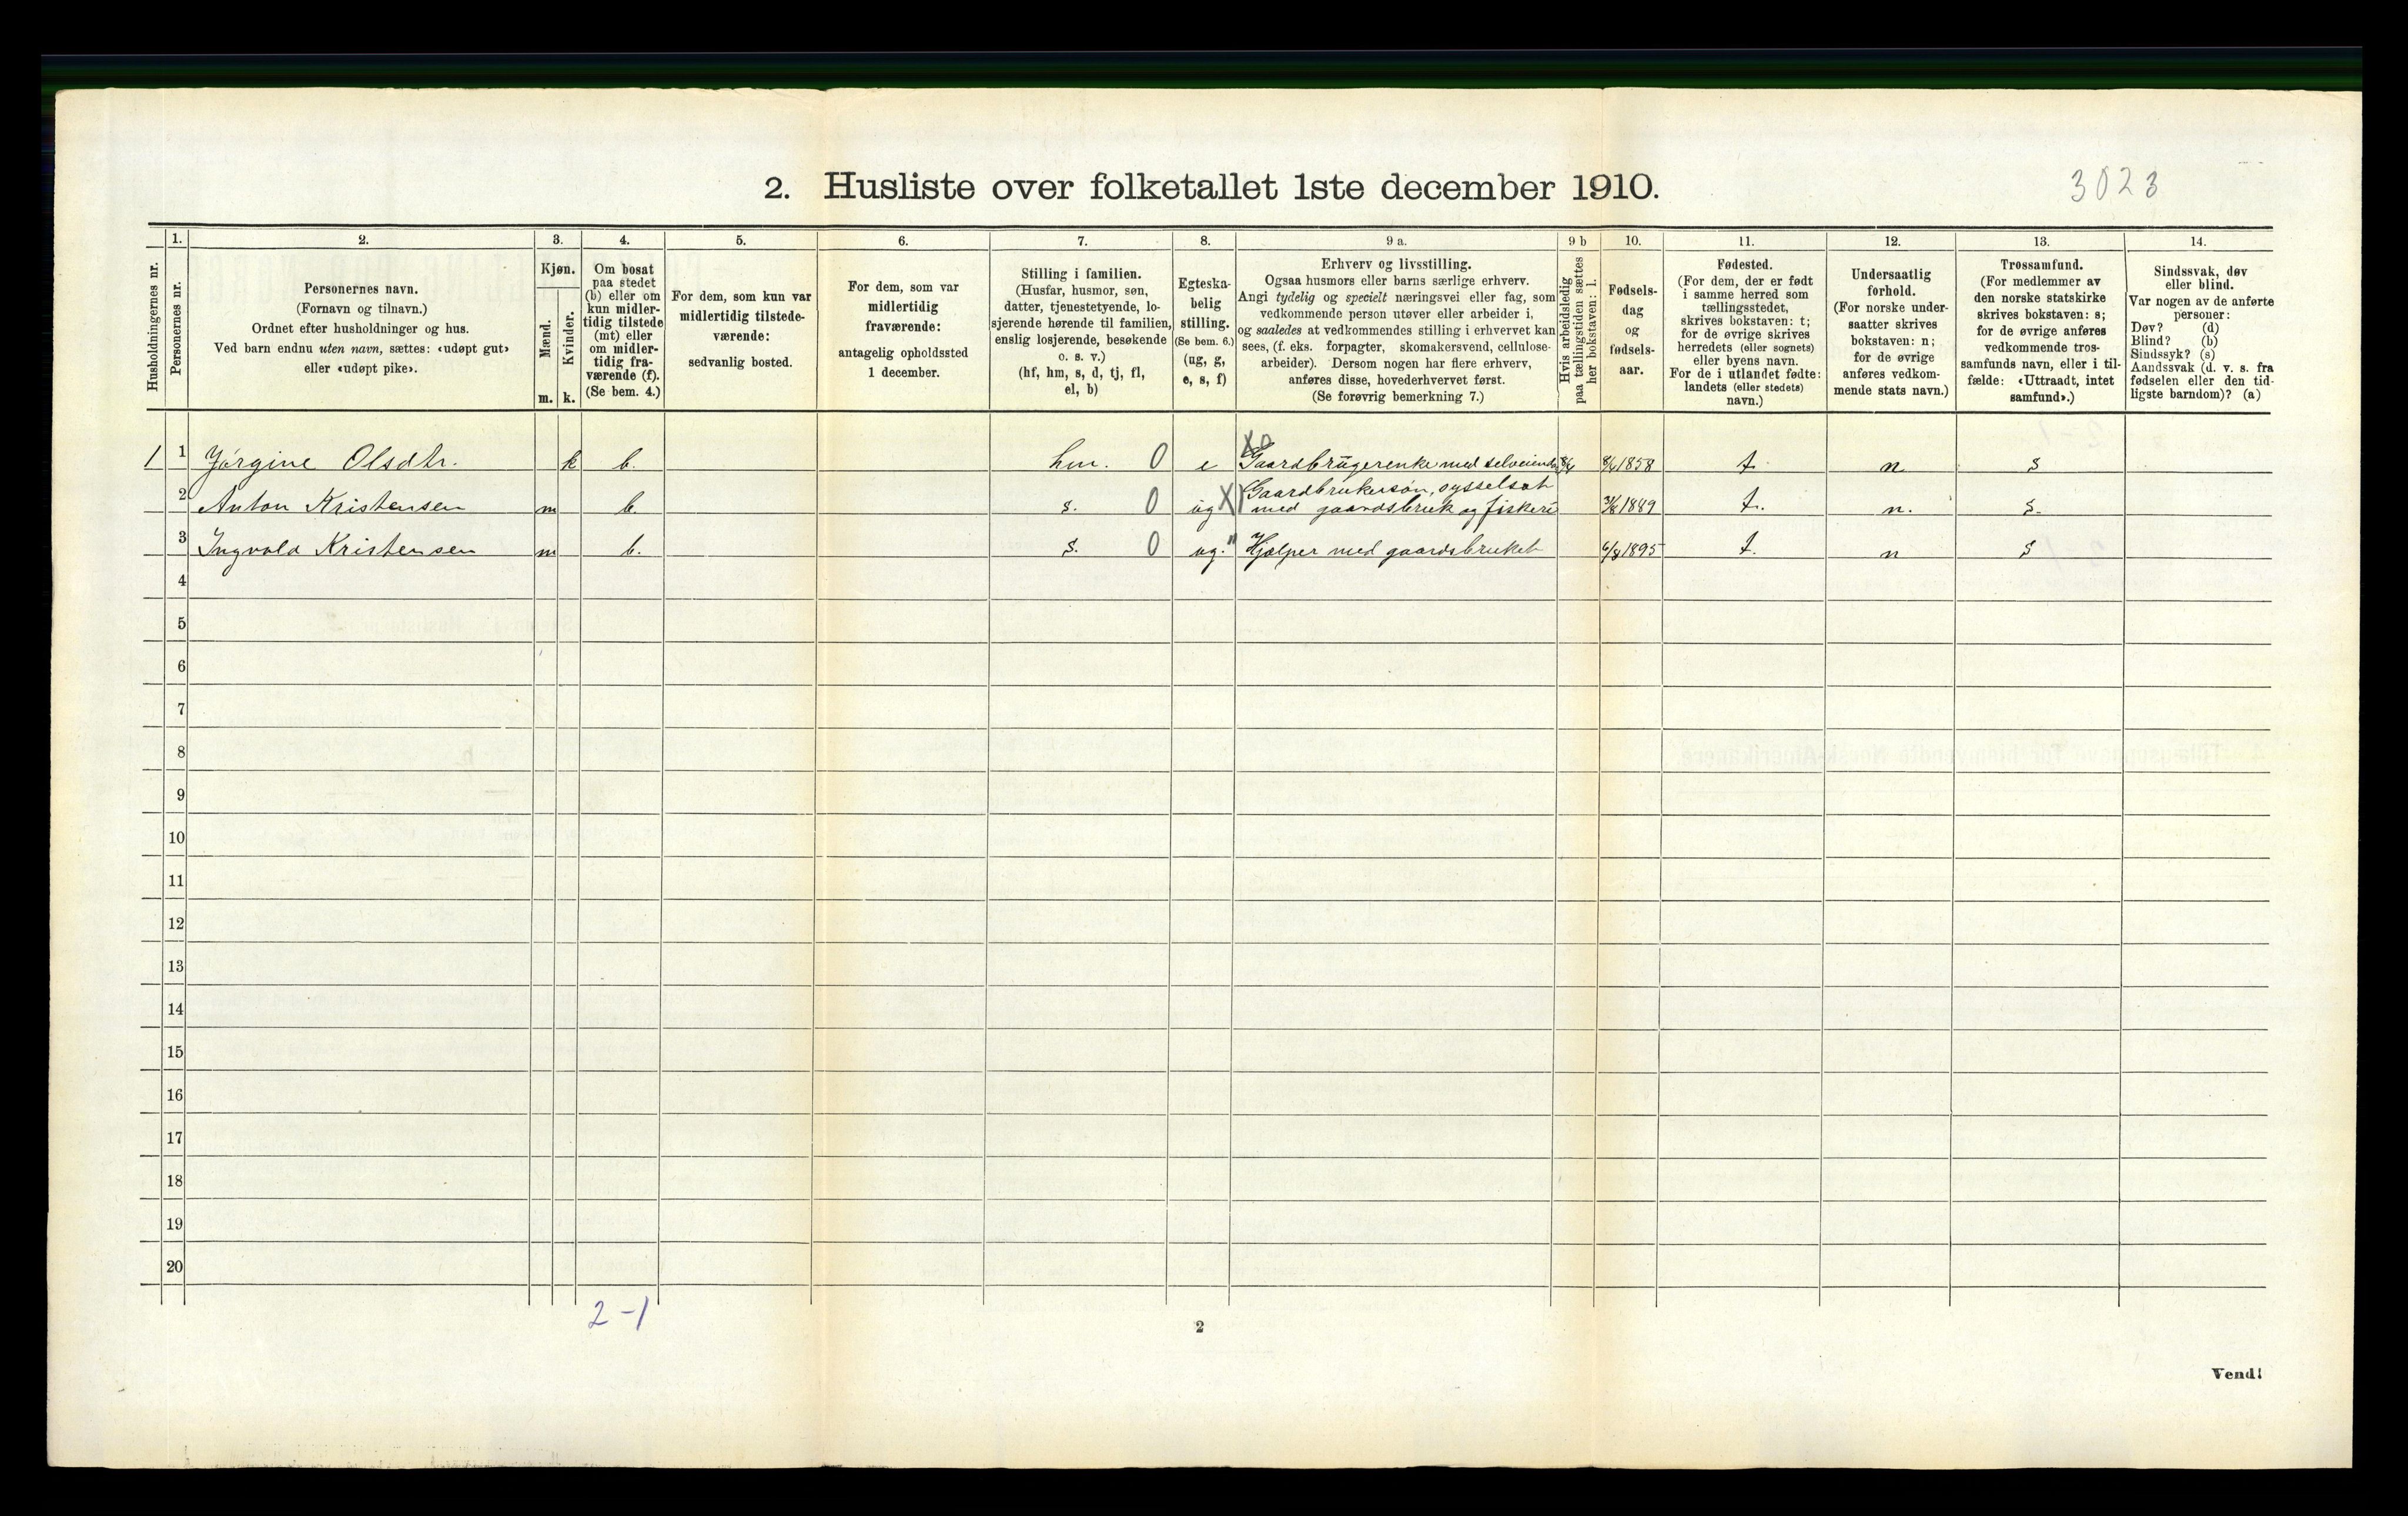 2. Husliste over folketallet 1ste december 1910.
3023
Husholdningernes nr.
1.
Personernes nr.
2.
Personernes navn.
(Fornavn og tilnavn.)
Ordnet efter husholdninger og hus.
Ved barn endnu uten navn, sættes: «udøpt gut»
eller «udøpt pike».
3.
Kjøn.
Mænd.
Kvinder.
m. k.
4.
Om bosat
paa stedet
(b) eller om
kun midler-
tidig tilstede
(mt) eller
om midler-
tidig fra-
værende (f).
(Se bem. 4.)
5.
For dem, som kun var
midlertidig tilstede-
værende:
sedvanlig bosted.
6.
For dem, som var
midlertidig
fraværende:
antagelig opholdssted
1 december.
7.
Stilling i familien.
(Husfar, husmor, søn,
datter, tjenestetyende, lo-
sjerende hørende til familien,
enslig losjerende, besøkende
o. s. v.)
(hf, hm, s, d, tj, fl,
el, b)
8.
Egteska-
belig
stilling.
(Se bem. 6.)
(ug, g,
e, s, f)
9 a.
Erhverv og livsstilling.
Ogsaa husmors eller barns særlige erhverv.
Angi tydelig og specielt næringsvei eller fag, som
vedkommende person utøver eller arbeider i,
og saaledes at vedkommendes stilling i erhvervet kan
sees, (f. eks. forpagter, skomakersvend, cellulose-
arbeider). Dersom nogen har flere erhverv,
anføres disse, hovederhvervet først.
(Se forøvrig bemerkning 7.)
9 b
Hvis arbeidsledig
paa tællingstiden sættes
her bokstaven: l.
10.
Fødsels-
dag
og
fødsels-
aar.
11.
Fødested.
(For dem, der er født
i samme herred som
tællingsstedet,
skrives bokstaven: t;
for de øvrige skrives
herredets (eller sognets)
eller byens navn.
For de i utlandet fødte:
landets (eller stedets)
navn.)
12.
Undersaatlig
forhold.
(For norske under-
saatter skrives
bokstaven: n;
for de øvrige
anføres vedkom-
mende stats navn.)
13.
Trossamfund.
(For medlemmer av
den norske statskirke
skrives bokstaven: s;
for de øvrige anføres
vedkommende tros-
samfunds navn, eller i til-
fælde: «Uttraadt, intet
samfund».)
14.
Sindssvak, døv
eller blind.
Var nogen av de anførte
personer:
Døv? (d)
Blind? (b)
Sindssyk? (s)
Aandssvak (d. v. s. fra
fødselen eller den tid-
ligste barndom)? (a)
1 1 Jørgine Olsdtr. k b. hm. 0 e Gaardbrugerenke med selveiende 1858 t n s
2 Anton Kristensen m b. s. 0 ug X Gaardbrukersøn, sysselsat
med gaardsbruk og fiskeri 1889 t. n. s.
3 Ingvald Kristensen m b. s. 0 ug. " Hjælper med gaardsbruket 6/8 1895 t. n s
4
5
6
7
8
9
10
11
12
13
14
15
16
17
18
19
20
2-1
2
Vend!